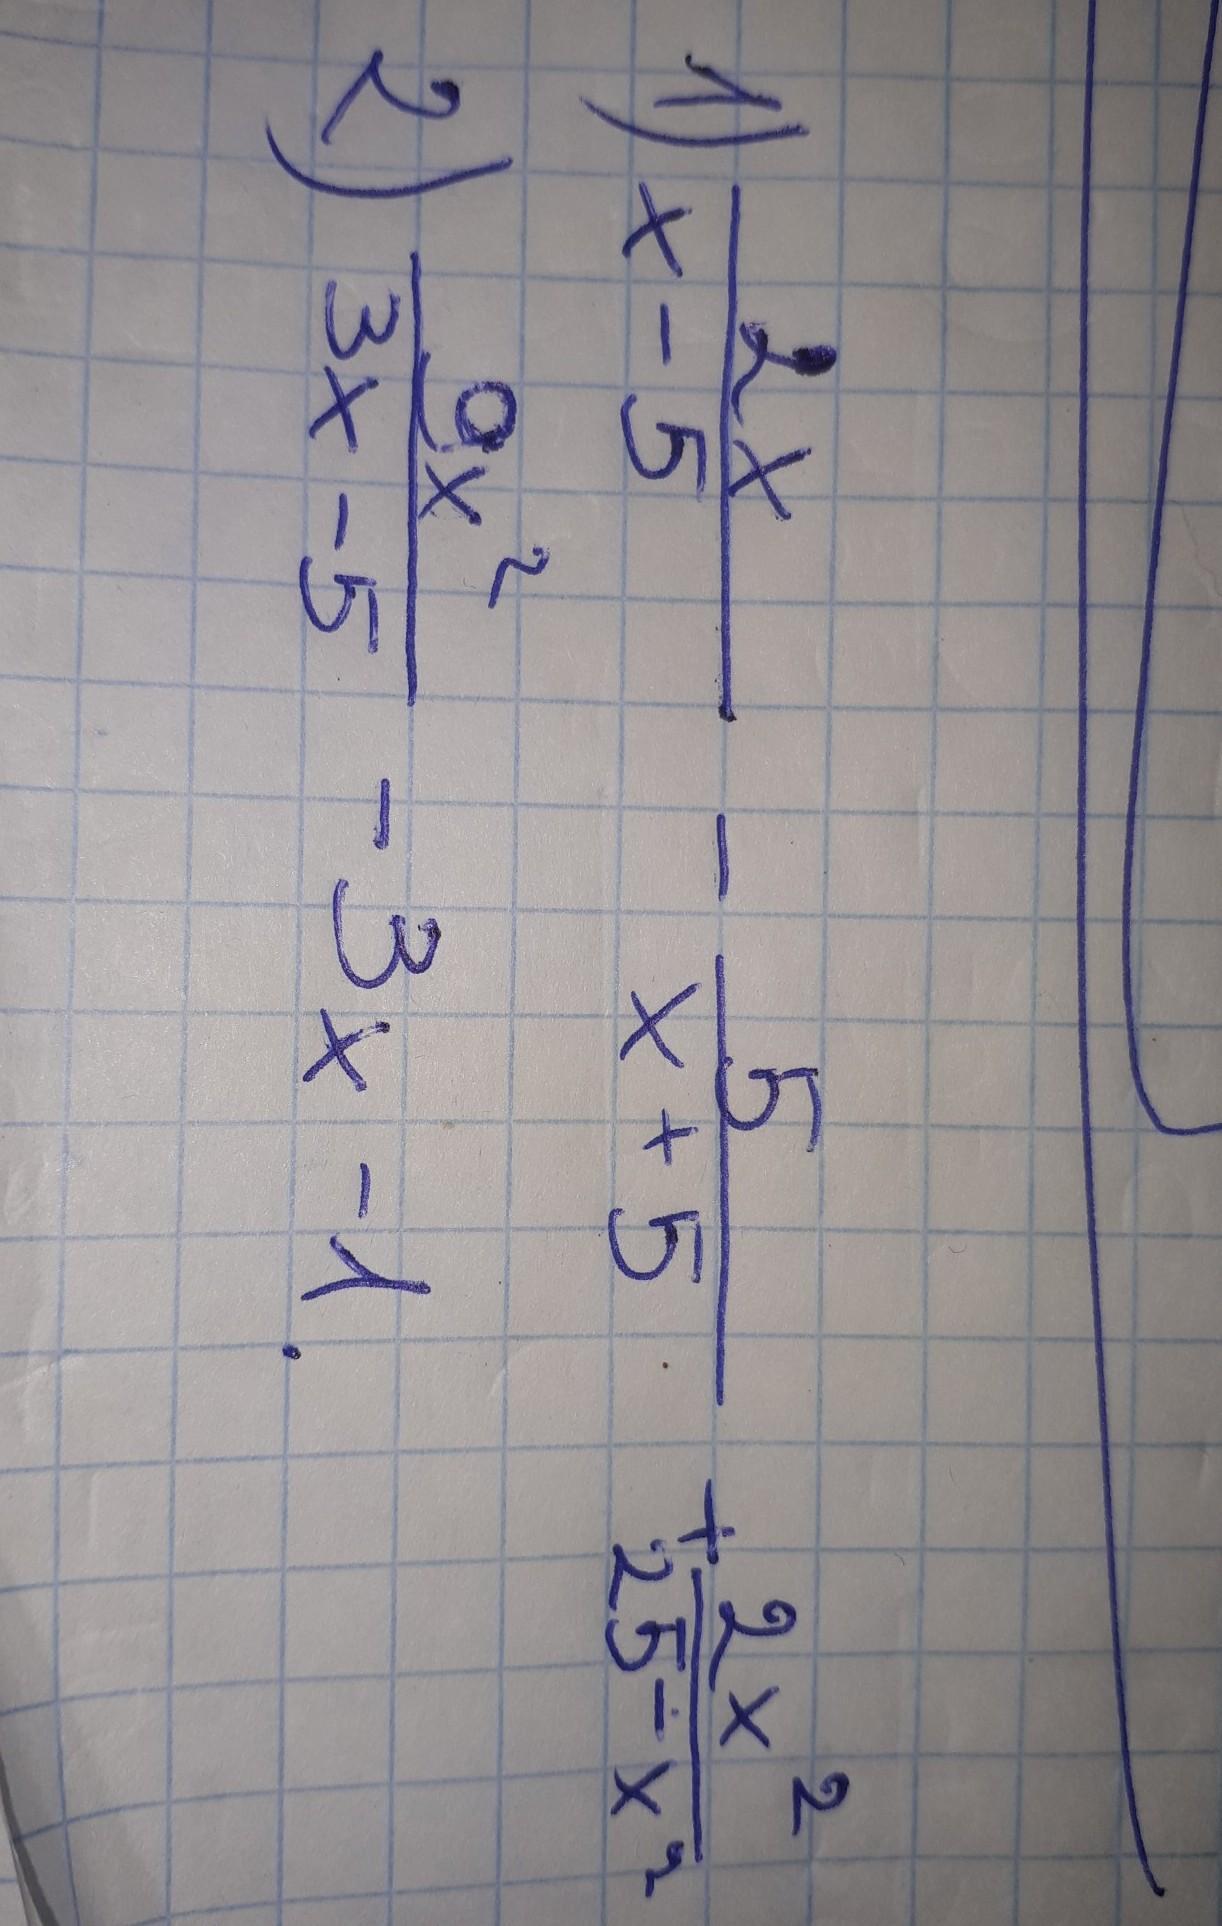 1) 2x/(x-5) - 5/(x+5) + 2x²/(25-x²)
2) 9x²/(3x-5) - 3x - 1.